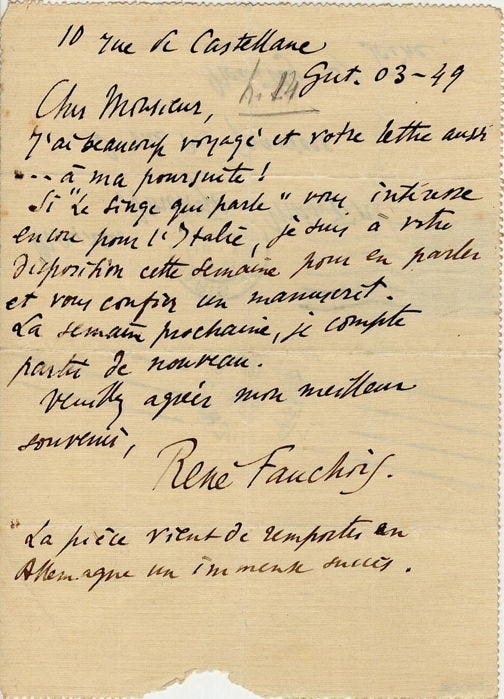 10 rue de Castellane
Gut. 03-49
Cher Monsieur,
J'ai beaucoup voyagé et votre lettre aussi
... à ma poursuite !
Si "Le Singe qui parle" vous intéresse
encore pour l'Italie, je suis à votre
disposition cette semaine pour en parler
et vous confier un manuscrit.
La semaine prochaine, je compte
partir de nouveau.
Veuillez agréer mon meilleur
souvenir,
René Fauchois.
La pièce vient de remporter en
Allemagne un immense succès.